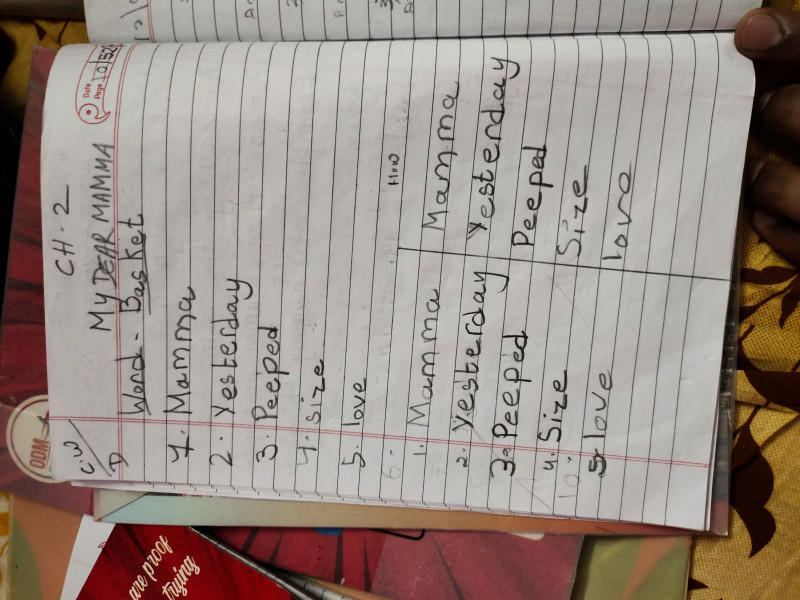 CH-2
C.W/D
MY DEAR MAMMA
Date
Page 10/5/25
Word - Basket
1. Mamma
2. Yesterday
3. Peeped
4. size
5. love
6.
H.W
1. Mamma Mamma
2. Yesterday Yesterday
3. Peeped Peeped
4. Size Size
5. love love
ODM
are proof
trying